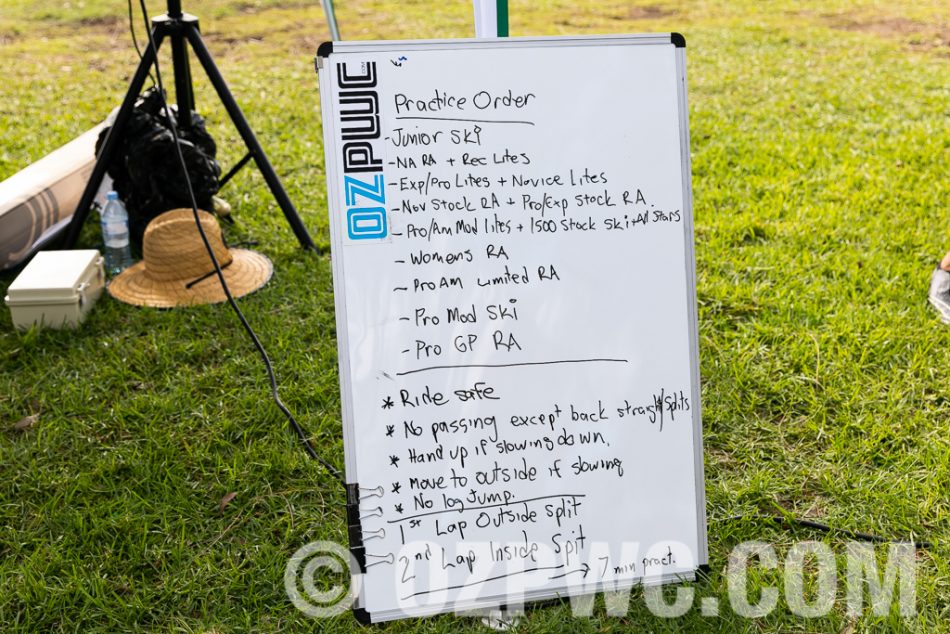 OZPWC
.COM
Practice Order
- Junior Ski
- NA RA + Rec Lites
- Exp/Pro Lites + Novice Lites
- Nov Stock RA + Pro/Exp Stock RA.
- Pro/Am Mod lites + 1500 Stock Ski + All Stars
- Womens RA
- Pro Am Limited RA
- Pro Mod Ski
- Pro GP RA
* Ride safe
* No passing except back straight/Splits
* Hand up if slowing down.
* Move to outside if slowing
* No log Jump.
1st Lap Outside Split
2nd Lap Inside Spit
→ 7 min pract.
© OZPWC.COM